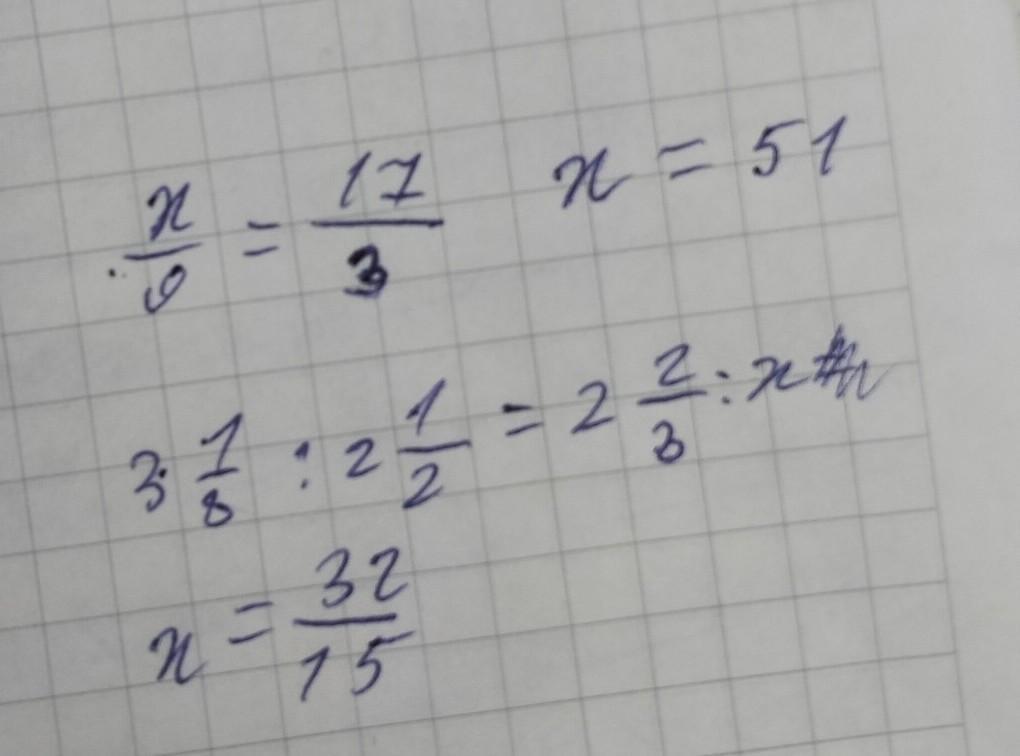 x/9 = 17/3 x = 51
3 1/8 : 2 1/2 = 2 2/3 : x
x = 32/15